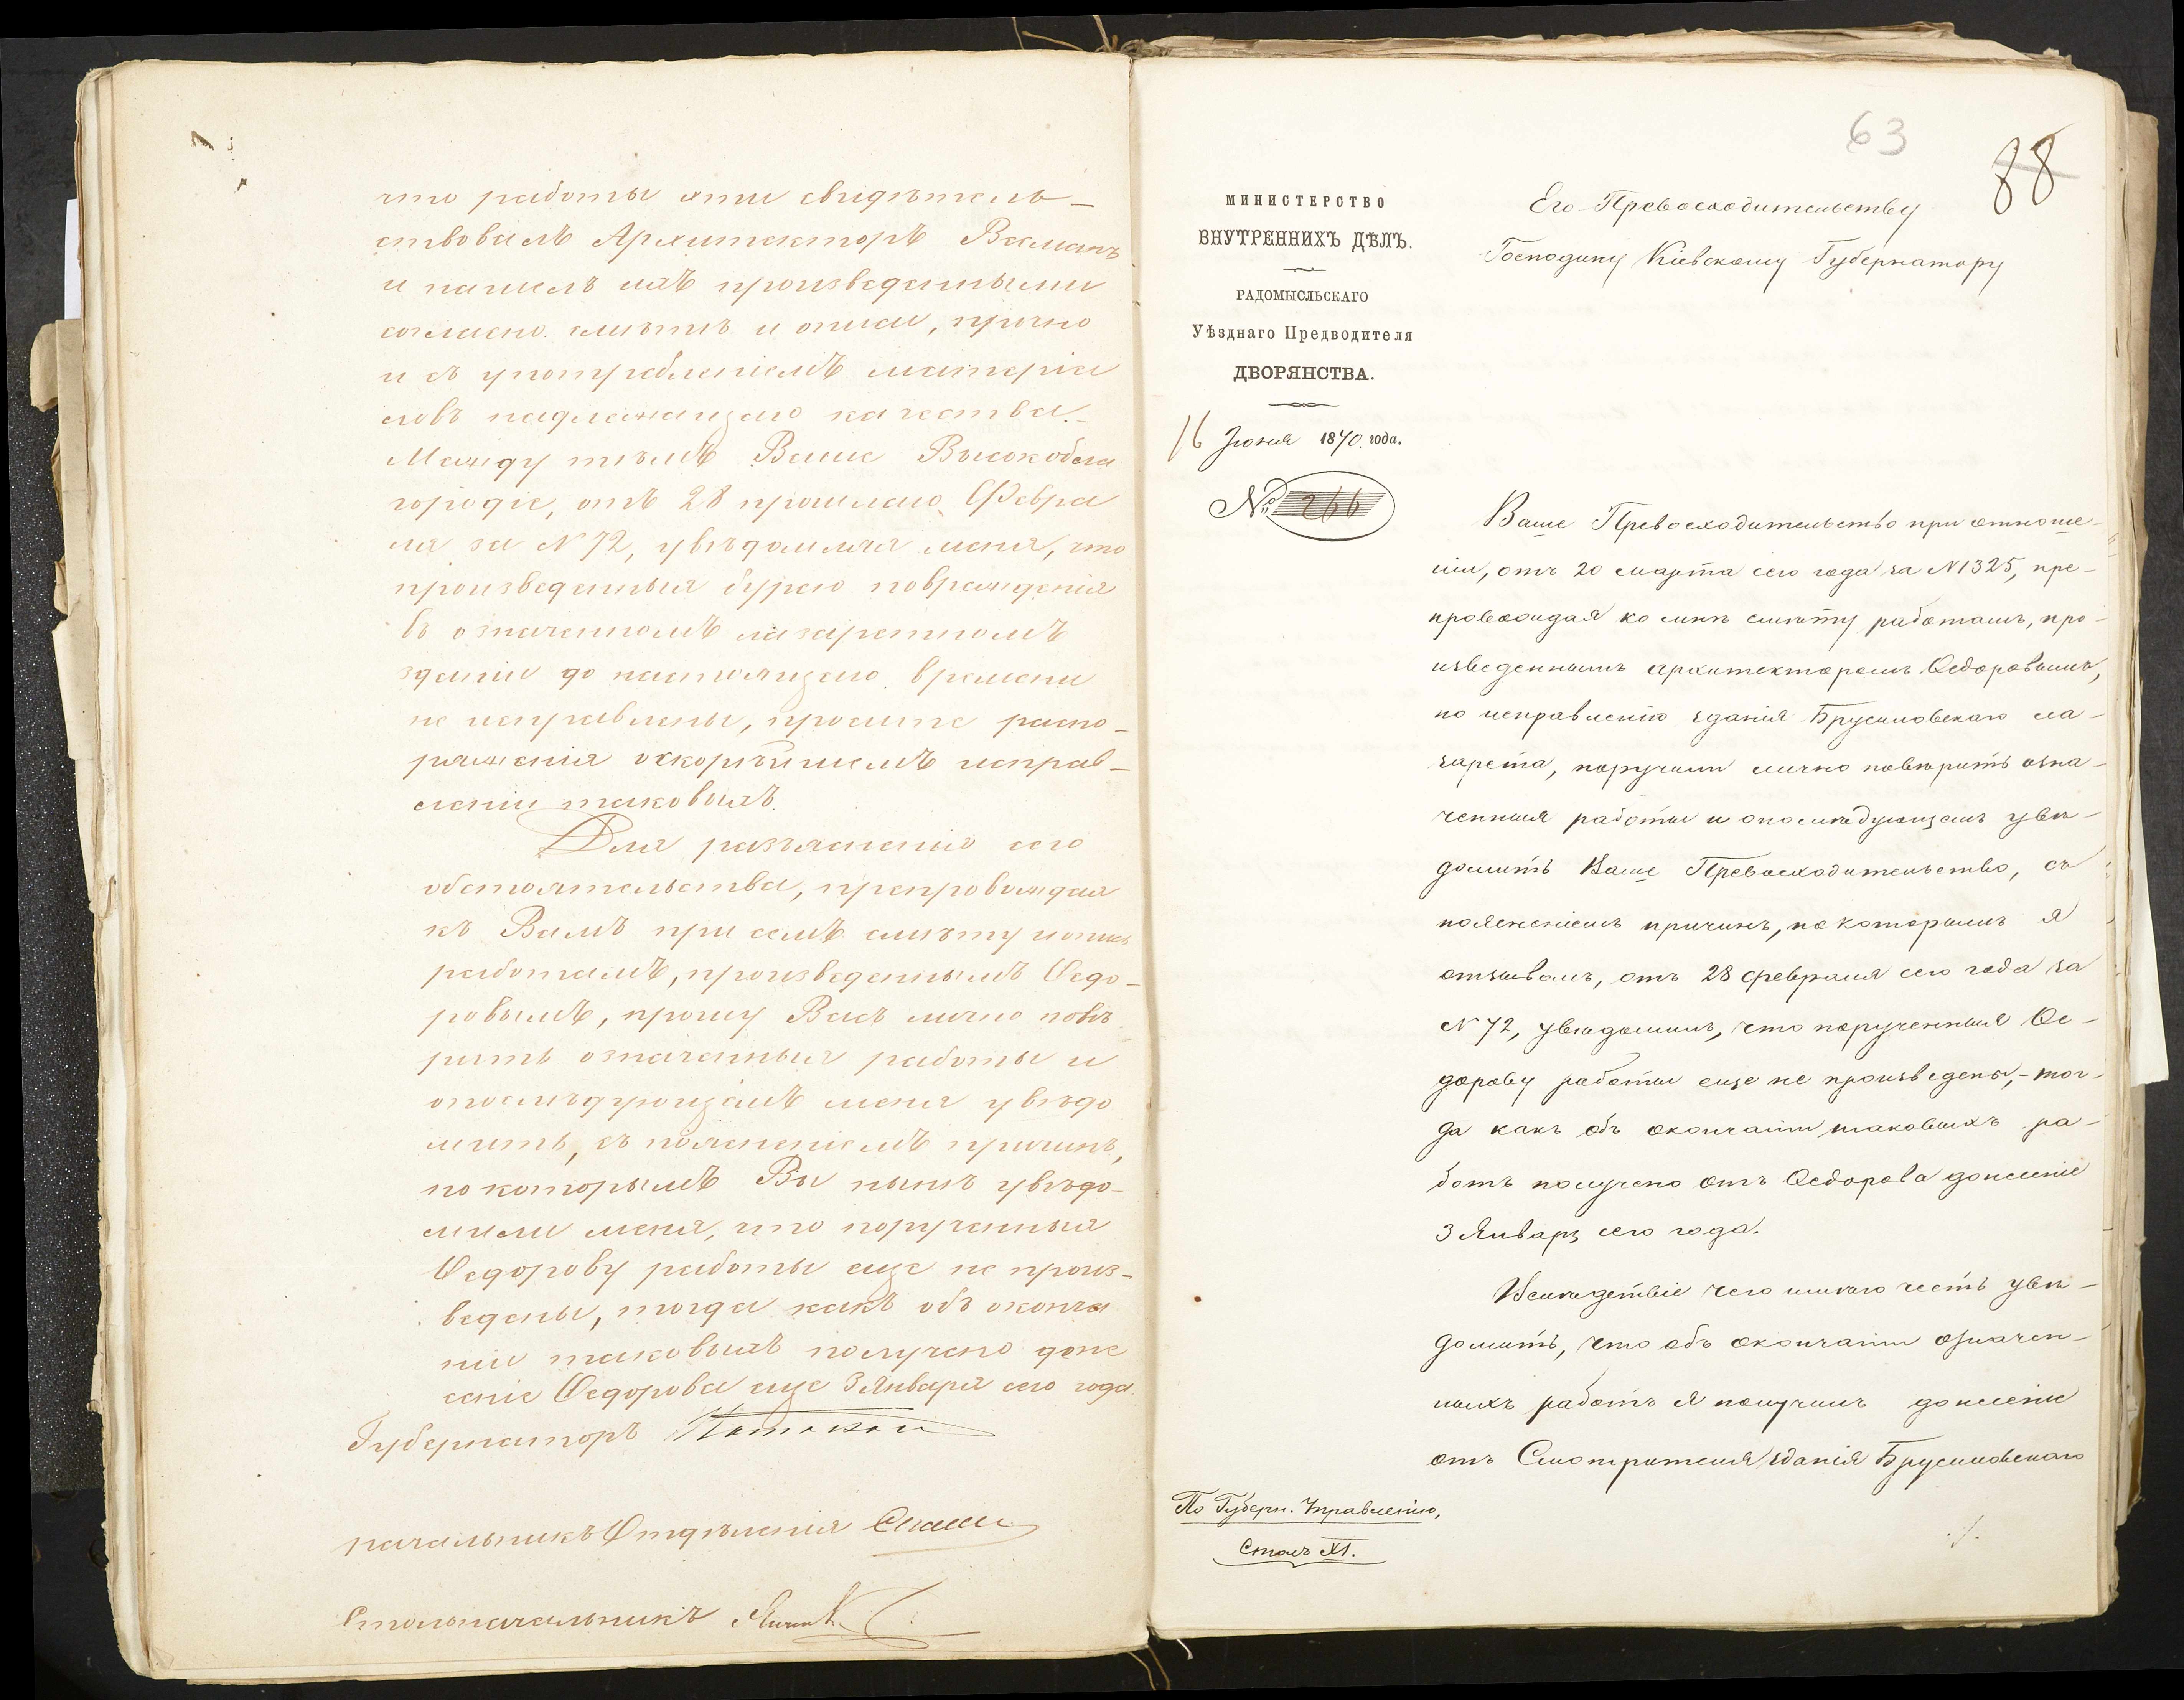 что работы эти свидѣтель-
ствовалъ Архитекторъ Васманъ
и нашелъ ихъ произведенными
согласно смѣтѣ и описи, прочно
и съ употребленіемъ матеріа
ловъ надлежащаго качества.-
Между тѣмъ Ваше Высокобла
городіе, отъ 28 прошлаго Февра
ля за N 72, увѣдомляя меня, что
произведенныя бурею поврежденія
въ означенномъ лазаретномъ
зданіи до настоящаго времени
не исправлены, просите распо-
ряженія о скорѣйшемъ исправ-
леніи таковыхъ.
Для разъясненія сего
обстоятельства, препровождая
къ Вамъ при семъ смѣту и опись
работамъ, произведеннымъ Ѳедо-
ровымъ, прошу Васъ лично повѣ
рить означенныя работы и
о послѣдующемъ меня увѣдо
мить, съ поясненіемъ причинъ,
по которымъ Вы нынѣ увѣдо-
мили меня, что порученныя
Ѳедорову работы еще не произ-
ведены, тогда какъ объ оконча
ніи таковыхъ получено доне
сеніе Ѳедорова еще 3 Января сего года.
Губернаторъ
Начальникъ Отдѣленія
Столоначальникъ
63
88
МИНИСТЕРСТВО
ВНУТРЕННИХЪ ДѢЛЪ.
РАДОМЫСЛЬСКАГО
Уѣзднаго Предводителя
ДВОРЯНСТВА.
16 Іюня 1870 года.
№ 266
Его Превосходительству
Господину Кіевскому Губернатору
Ваше Превосходительство при отноше-
ніи, отъ 20 марта сего года за N 1325, пре-
провождая ко мнѣ смѣту работамъ, про-
изведеннымъ архитекторомъ Ѳедоровымъ,
по исправленію зданія Брусиловскаго ла-
зарета, поручили лично повѣрить озна-
ченныя работы и о послѣдующемъ увѣ-
домить Ваше Превосходительство, съ
поясненіемъ причинъ, по которымъ я
отзывомъ, отъ 28 февраля сего года за
N 72, увѣдомилъ, что порученныя Ѳе-
дорову работы еще не произведены,- тог-
да какъ объ окончаніи таковыхъ ра-
ботъ получено отъ Ѳедорова донесеніе
3 Января сего года.
Вслѣдствіе чего имѣю честь увѣ-
домить, что объ окончаніи означен-
ныхъ работъ я получилъ донесеніе
отъ Смотрителя зданія Брусиловскаго
По Губерн. Управленію,
Столъ XI.
./.